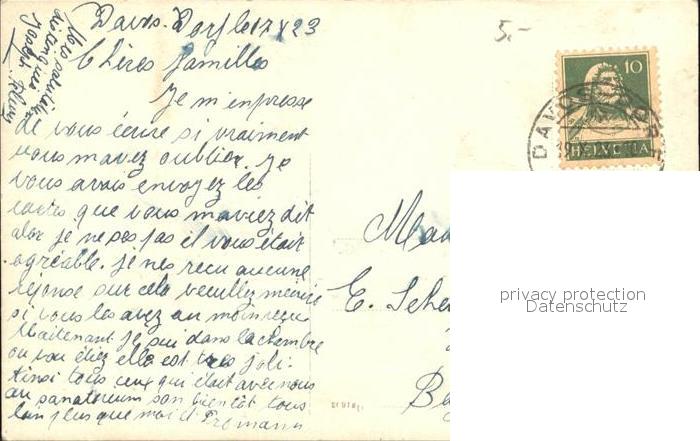 Davos-Dorf le 17 X 23
5.-
Chères familles
Je m'enpresse
de vous écrire si vraiment
vous mavez oublier. Je
vous avais envoyez les
cartes que vous maviez dit
alor je ne pas il vous était
agréable. Je nes recu aucune
réponse sur cela veuillez
si vous les avez au moin recu
Maitenant je sui dans la chambre
ou vou étiez elle est tres joli.
Ainsi tous ceux qui était avec nous
au sanatorium son bientôt tous
loin plus que moi et
10
HELVETIA
DAVOS
Mad
E.
privacy protection
Datenschutz